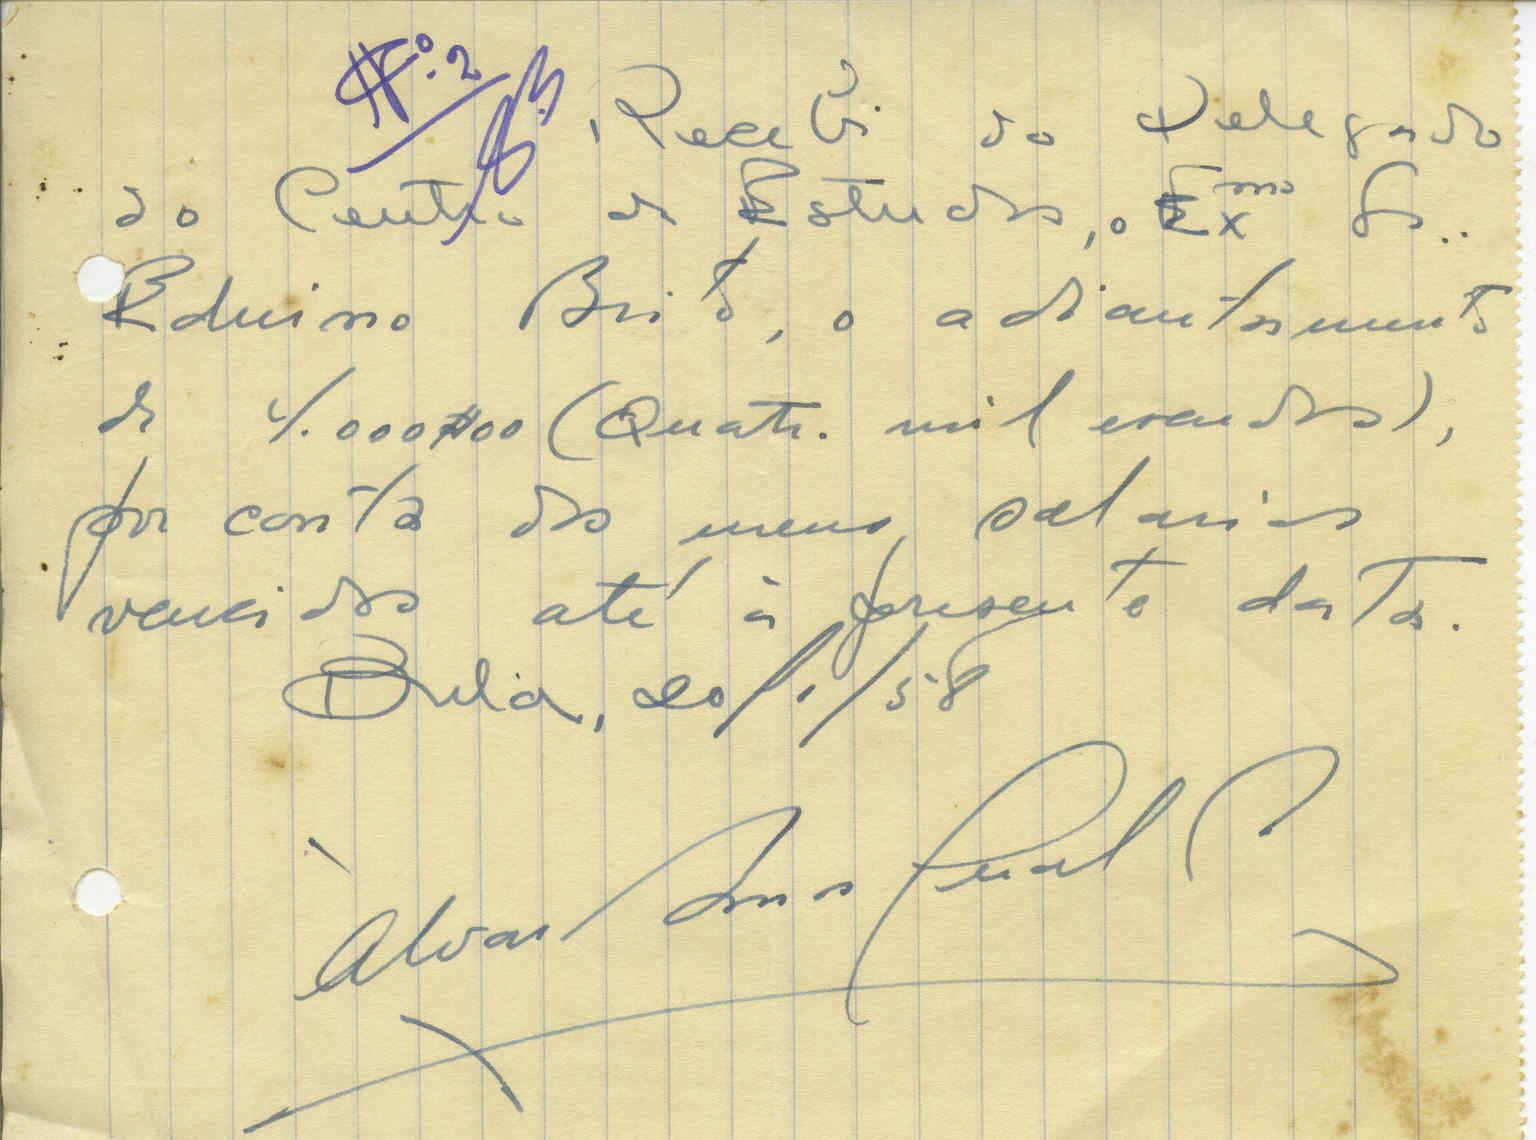 Nº. 2
Recebi do Delegado
do Centro de Estudos, o Exmo Sr.
Eduino Brito, o adiantamento
de 4.000$00 (Quatro mil escudos),
por conta dos meus salarios
vencidos até à presente data.
Bula, 20/1/58
Alvaro